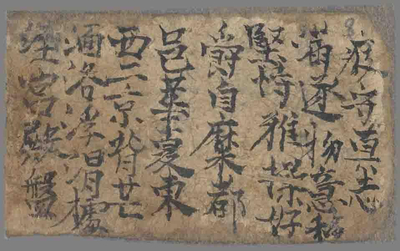 疲守真志
滿逐物意移
堅持雅操好
爵自糜都
邑華夏東
西二京背芒
面洛浮渭據
涇宮殿盤